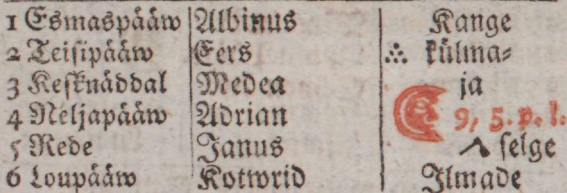 1 Esmaspääw Albinus Kange
2 Teisipääw Eers ∴ külma-
3 Kesknäddal Medea ja
4 Neljapääw Adrian 9, 5. p. l.
5 Rede Janus selge
6 Loupääw Kotwrid Ilmade